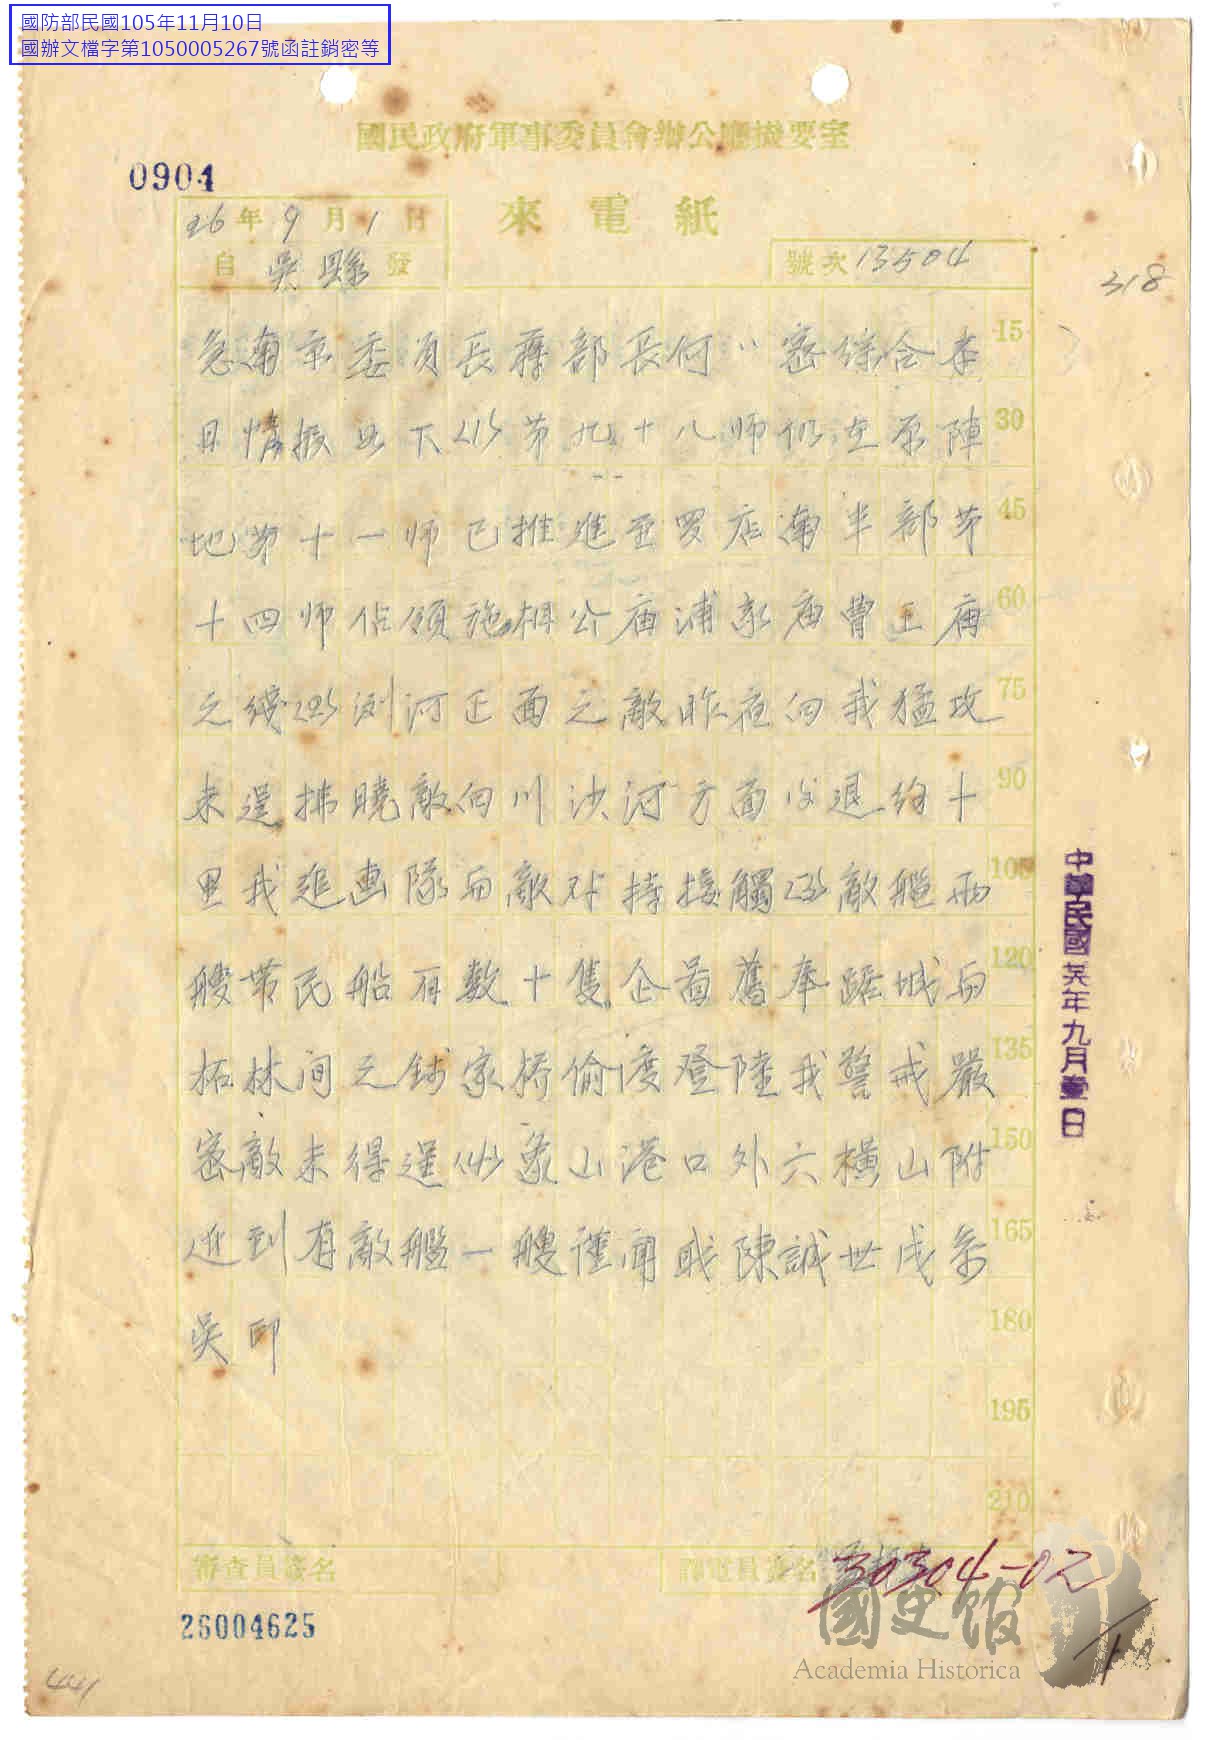 國防部民國105年11月10日
國辦文檔字第1050005267號函註銷密等
國民政府軍事委員會辦公廳機要室
0904
來電紙
26年9月1日
自吳縣發
號次13504
318
急南京委員長蔣部長何密綜合本 15
日情報如下(1)第九十八師仍在原陣 30
地第十一師已推進至羅店南半部第 45
十四師佔領施相公廟浦家廟曹王廟 60
之綫(2)瀏河正面之敵昨夜向我猛攻 75
未逞拂曉敵向川沙河方面後退約十 90
里我追擊隊與敵對持接觸(3)敵艦兩 105
艘帶民船有數十隻企圖舊奉賢城與 120
柘林間之錢家橋偷渡登陸我警戒嚴 135
密敵未得逞(4)象山港口外六橫山附 150
近到有敵艦一艘謹聞職陳誠世戌參 165
吳印 180
195
210
中華民國廿六年九月壹日
審查員簽名
譯電員簽名
30304-02
26004625
441
國史館
Academia Historica